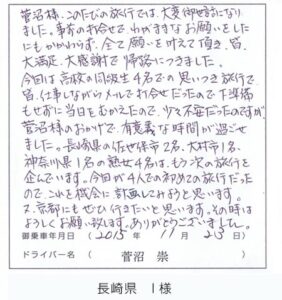 菅沼様、このたびの旅行では、大変御世話になり
ました。事前の打合せで、わがままなお願いをした
にもかかわらず、全て願いを叶えて頂き、皆、
大満足、大感謝で帰路につきました。
今回は高校の同級生4名での思いつき旅行で
皆、仕事しながらメールで打合せだったので下準備
もせずに当日をむかえたので、少々不安だったのですが
菅沼様のおかげで、有意義な時間が過ごせ
ました。長崎県の佐世保市2名、大村市1名、
神奈川県1名の熟女4名は、もう次の旅行を
企んでいます。今回が4人での初めての旅行だった
ので、これを機会に計画してみようと思います。
又、京都にもぜひ行きたいと思います。その時は
よろしくお願い致します。ありがとうございました。
御乗車年月日(2015年11月23日)
ドライバー名(菅沼 崇)
長崎県 I様